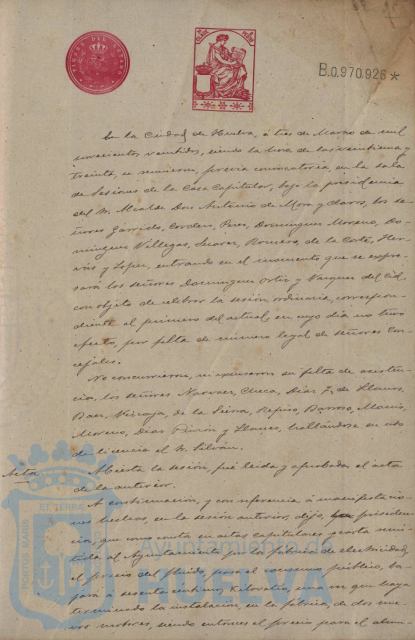 B.0.970.926 *
En la Ciudad de Huelva, a tres de Marzo de mil
novecientos veintidos, siendo la hora de las veintiuna y
treinta, se reunieron, previa convocatoria, en la sala
de Sesiones de la Casa Capitular, bajo la presidencia
del Sr. Alcalde Don Antonio de Mora y Claros, los se-
ñores Garrido, Cordero, Pérez, Dominguez Moreno, Do-
minguez Villegas, Suarez, Romero, de la Corte, Her-
vás y Lopez, entrando en el momento que se expre-
sará los señores Dominguez Ortiz y Vazquez del Cid,
con objeto de celebrar la sesión ordinaria, correspon-
diente al primero del actual, en cuyo día no tuvo
efecto, por falta de número legal de señores Con-
cejales.
No concurrieron, ni excusaron su falta de asisten-
cia, los señores Narvaez, Checa, Diaz F. de Llanos,
Baez, Vizcaya, de la Peña, Repiso, Barroso,
Moreno, Diaz Pinzón y Llanes, hallándose en uso
de licencia el Sr. Silván.
Acta
Abierta la sesión, fué leida y aprobada el acta
de la anterior.
A continuación, y con referencia a manifestacio-
nes hechas, en la sesión anterior, dijo, la presiden-
cia, que como consta en actas capitulares, carta remi-
tida al Ayuntamiento por la fábrica de electricidad,
el precio del fluido, para el consumo público, ba-
jará a sesenta centimos Kilovatio, una vez que haya
terminado la instalación, en la fábrica, de dos nue-
vos motores, siendo entonces el precio para el alum-
PORTUS MARIS
ET TERRAE
AYUNTAMIENTO DE
HUELVA